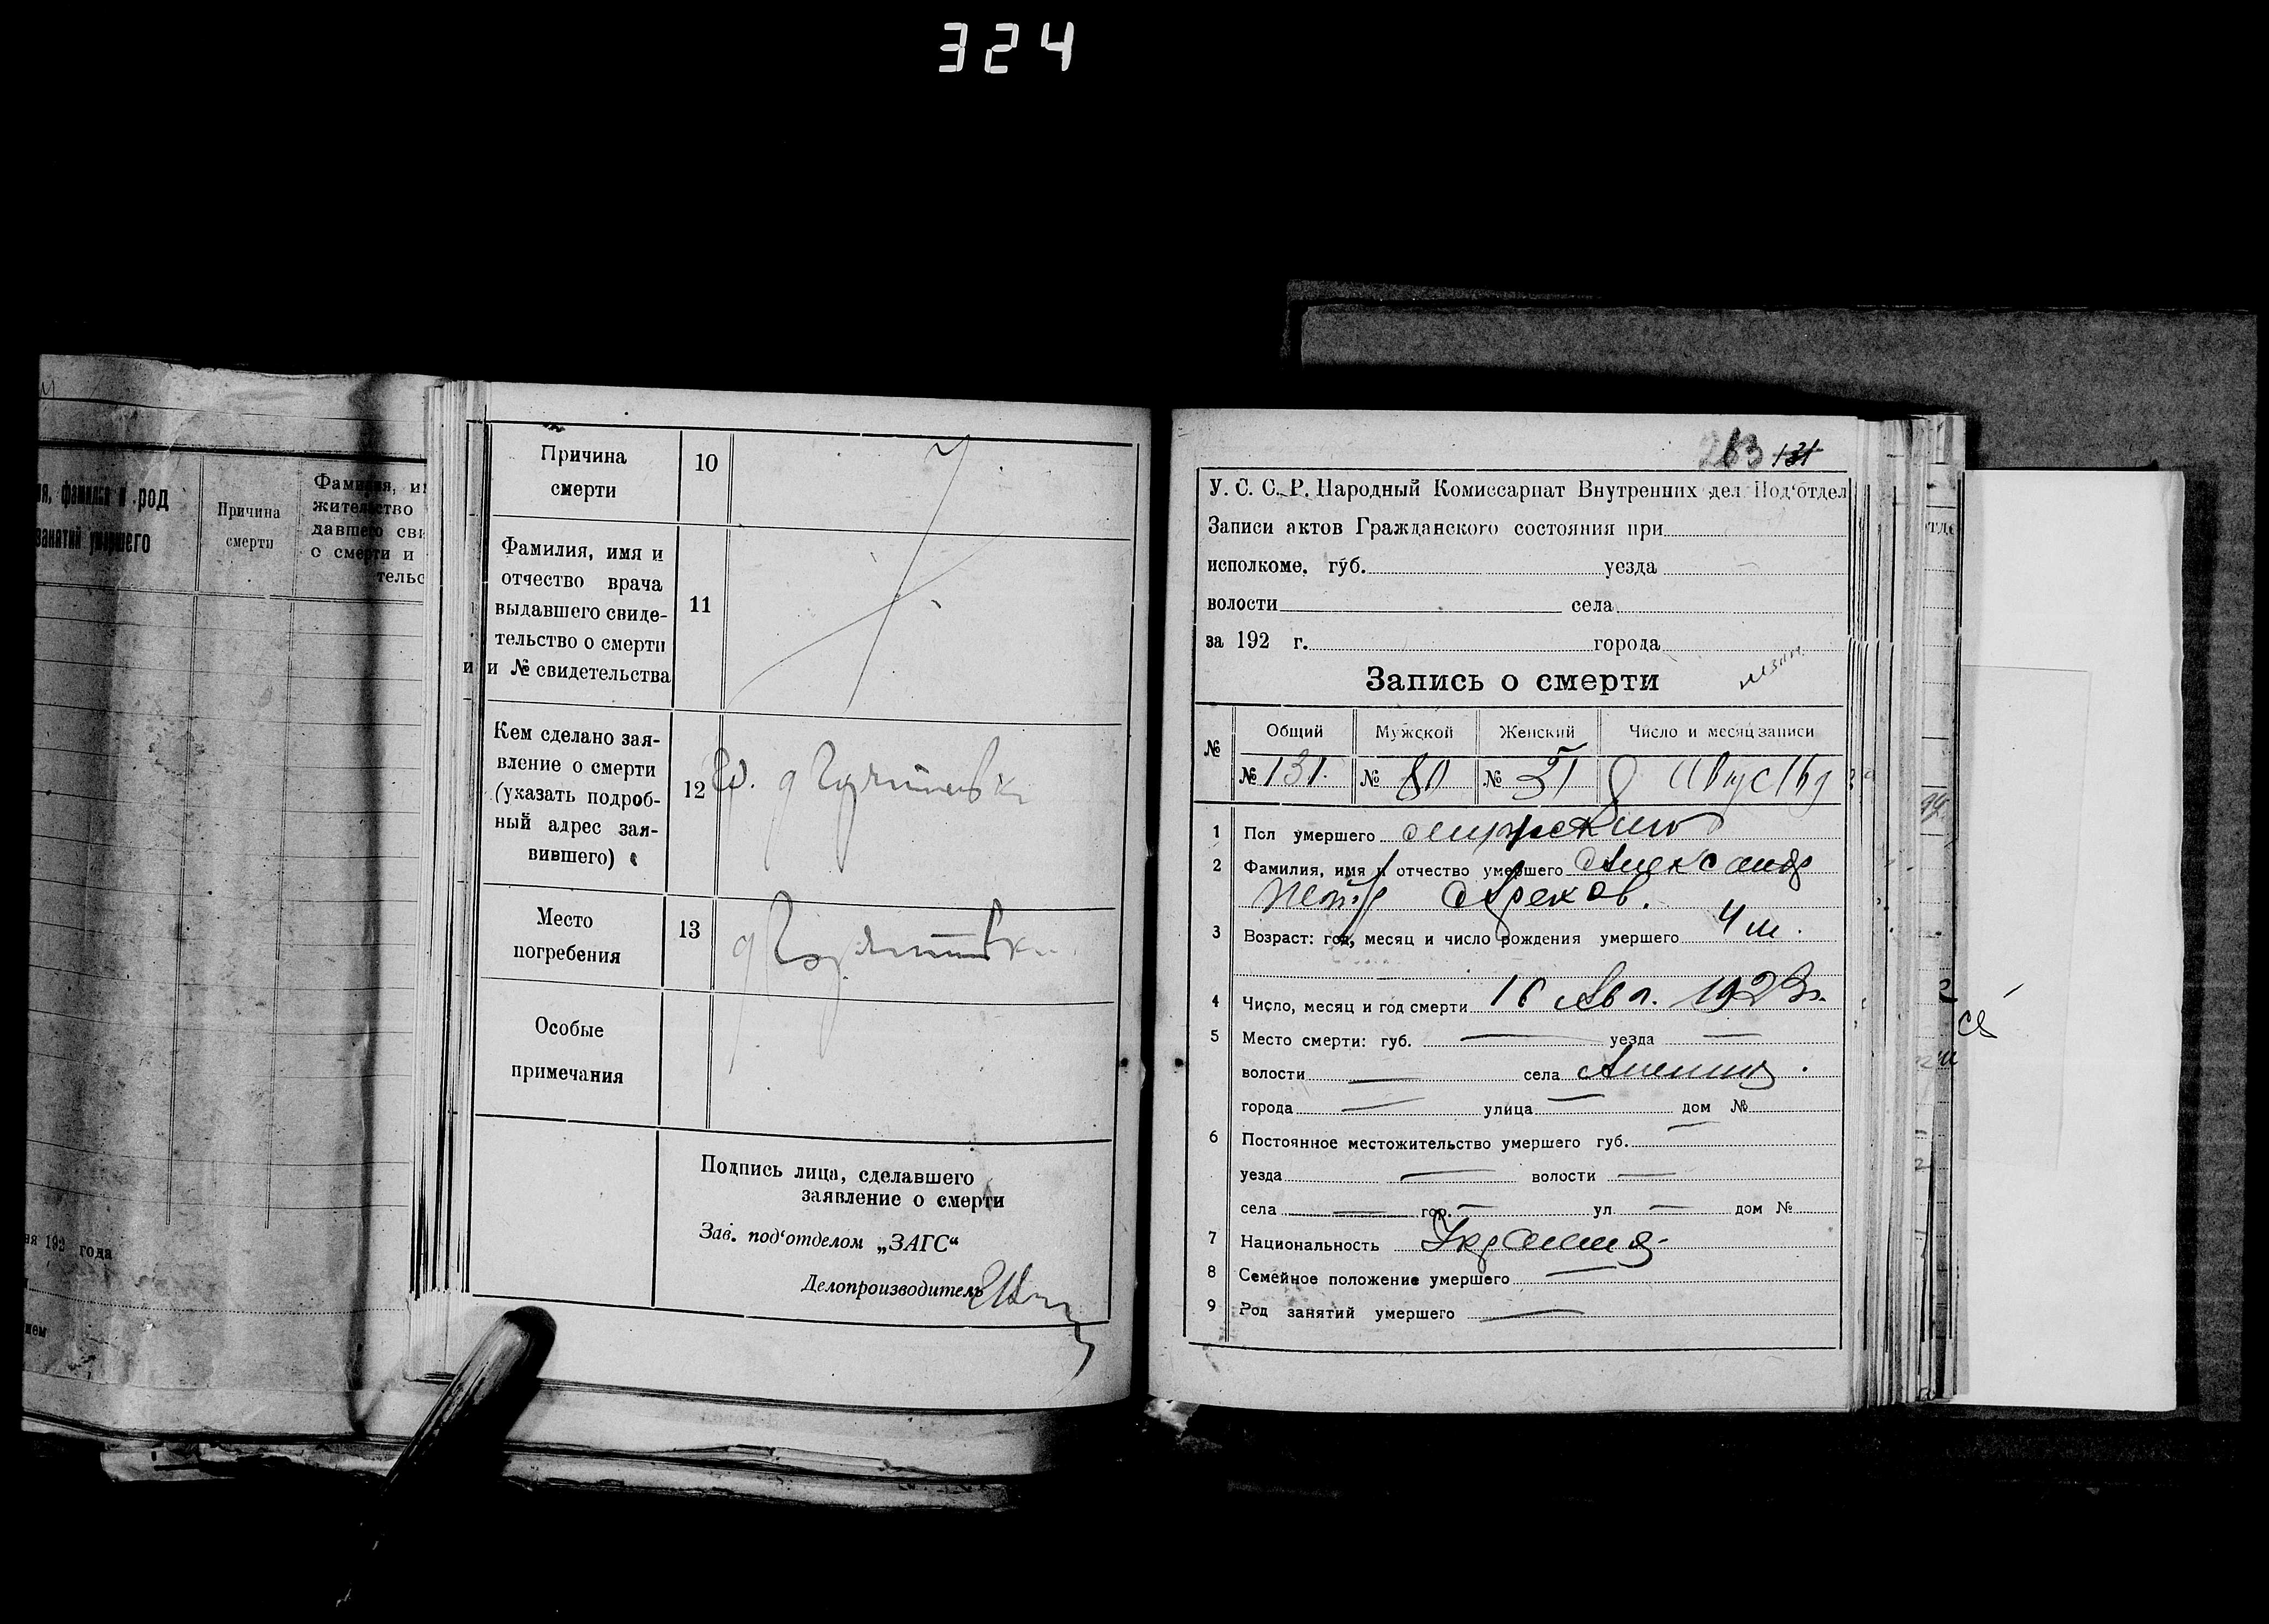 324
род
занятий умершего
Причина
смерти
Фамилия, и
жительство
давшего сви
о смерти и
тельс
192 года
Причина
смерти
10
Фамилия, имя и
отчество врача
выдавшего свиде-
тельство о смерти
и № свидетельства
11
Кем сделано зая-
вление о смерти
(указать подроб-
ный адрес зая-
вившего)
12
Место
погребения
13
Особые
примечания
Подпись лица, сделавшего
заявление о смерти
Зав. под‘отделом „ЗАГС“
Делопроизводитель
263 131
У. С. С. Р. Народный Комиссариат Внутренних дел Под‘отдел
Записи актов Гражданского состояния при
исполкоме, губ. уезда
волости села
за 192 г. города
Запись о смерти
№ Общий Мужской Женский Число и месяц записи
№ 131. № 80 № 51 8 Августа
1 Пол умершего мужский
2 Фамилия, имя и отчество умершего Александр
Петр
3 Возраст: год, месяц и число рождения умершего 4 м.
4 Число, месяц и год смерти 16 1923г.
5 Место смерти: губ. — уезда —
волости — села
города — улица — дом №
6 Постоянное местожительство умершего губ. —
уезда — волости —
села — гор. — ул — дом №
7 Национальность
8 Семейное положение умершего —
9 Род занятий умершего —